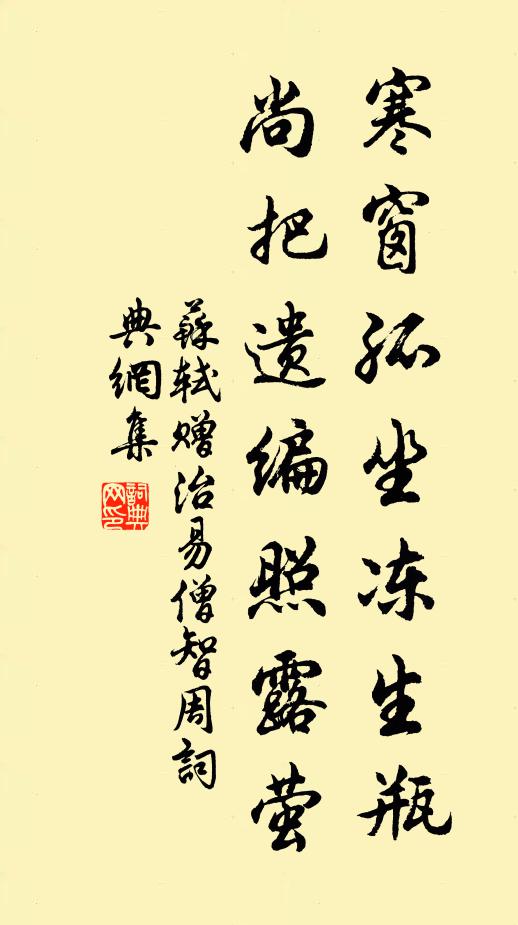 寒窗孤坐冻生瓶
尚把遗编照露萤
蘇轼赠治易僧智周詞
典網集
詞典
网印